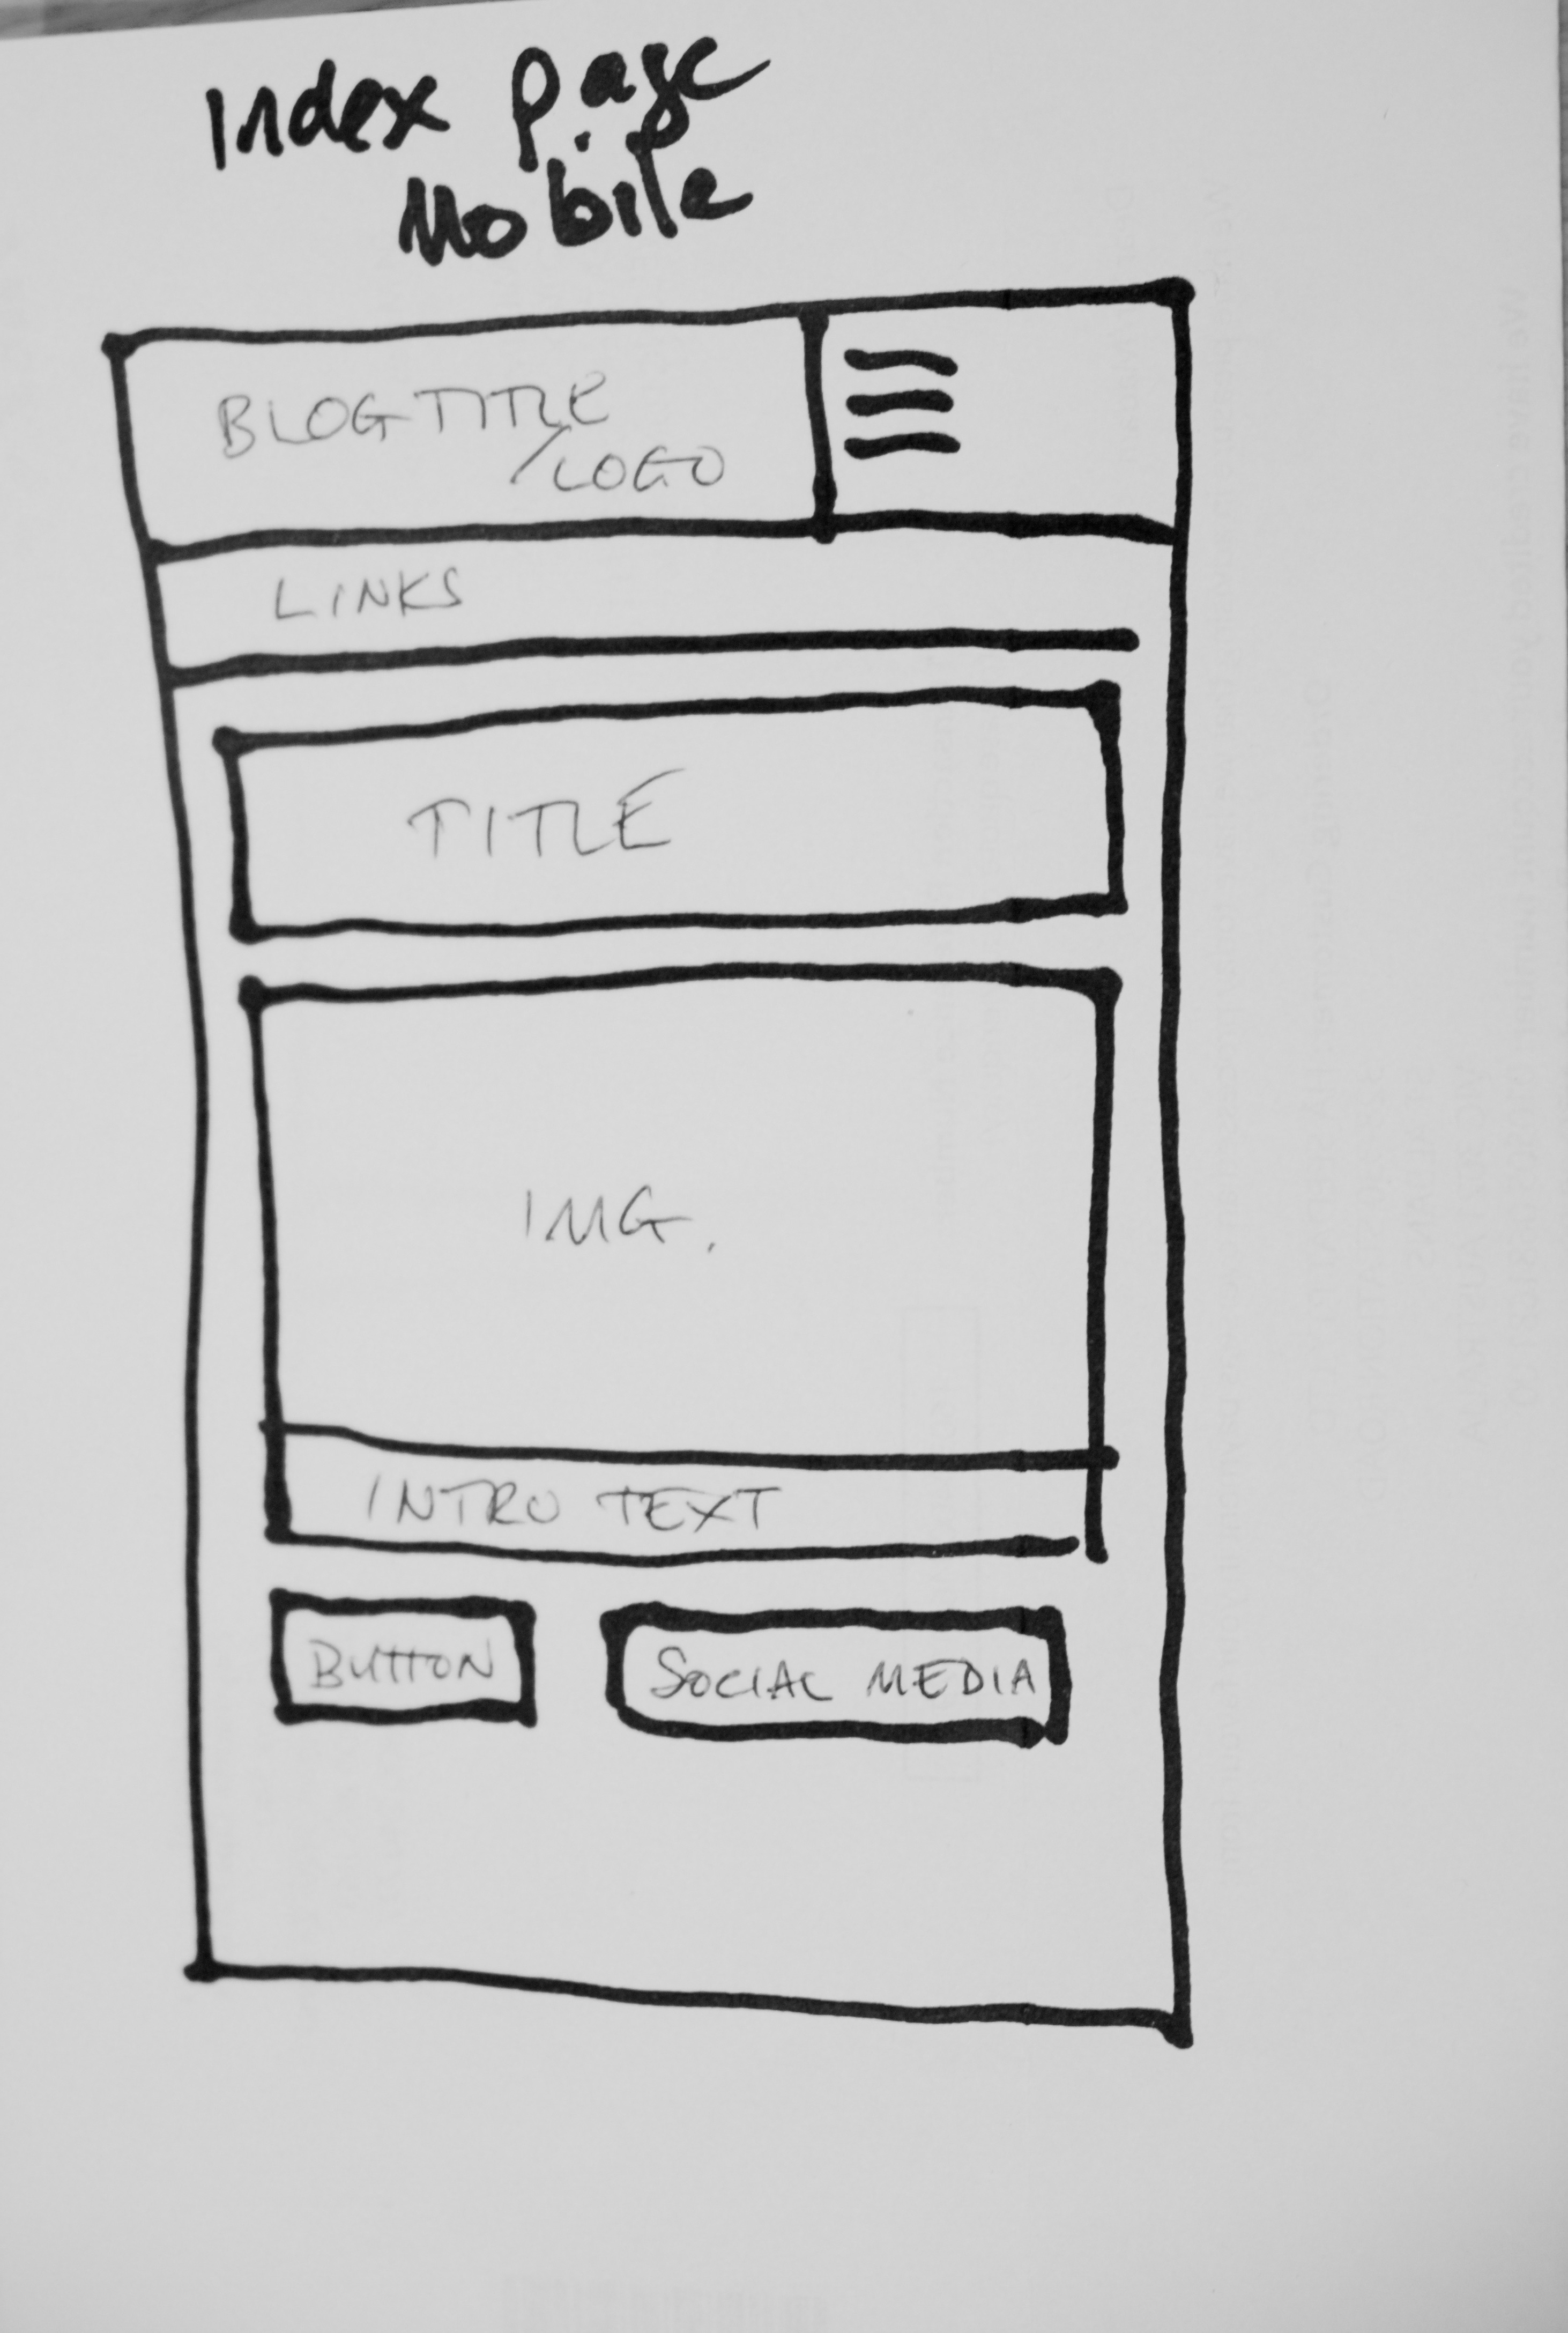 Index page
Mobile
BLOG TITLE
/LOGO
LINKS
TITLE
IMG.
INTRO TEXT
BUTTON
SOCIAL MEDIA